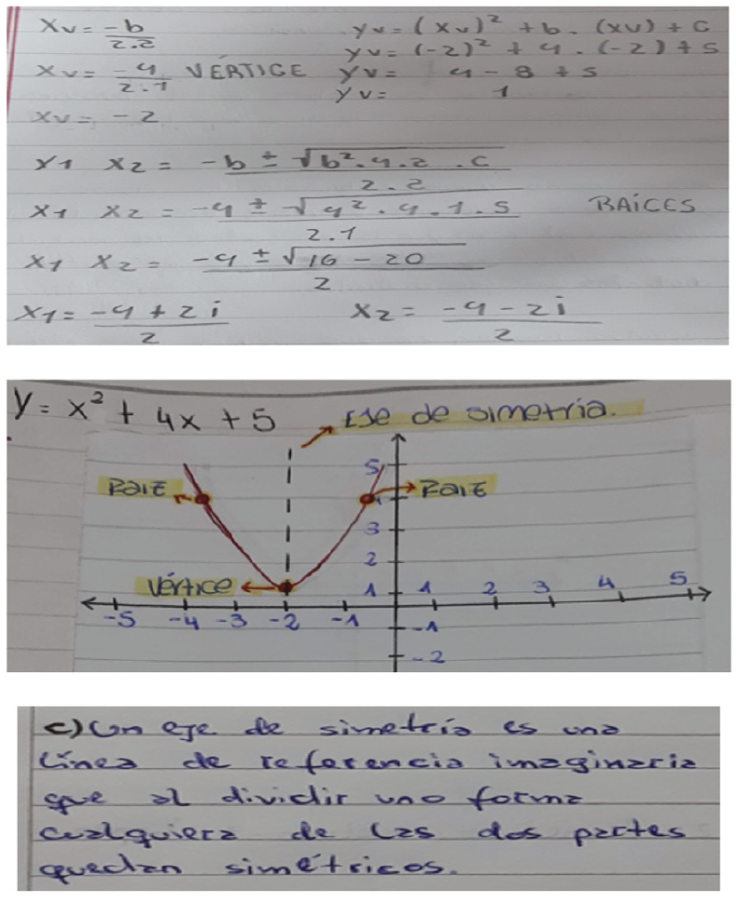 Xv = -b / 2.2
yv = (xv)² + b . (xv) + c
yv = (-2)² + 4 . (-2) + 5
Xv = -4 / 2.1 VÉRTICE yv = 4 - 8 + 5
yv = 1
Xv = -2
X1 X2 = -b ± √b².4.2 .c / 2.2
X1 X2 = -4 ± √4².4.1.5 / 2.1 RAÍCES
X1 X2 = -4 ± √16 - 20 / 2
X1 = -4 + 2i / 2 X2 = -4 - 2i / 2
y = x² + 4x + 5
Eje de simetría.
5
Raiz Raiz
3
2
Vértice 1 1 2 3 4 5
-5 -4 -3 -2 -1
-1
-2
c) Un eje de simetría es una
línea de referencia imaginaria
que al dividir una forma
cualquiera de las dos partes
quedan simétricos.